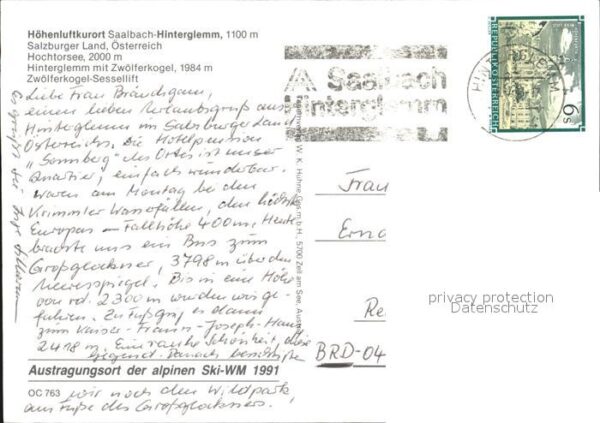 Höhenluftkurort Saalbach-Hinterglemm, 1100 m
Salzburger Land, Österreich
Hochtorsee, 2000 m
Hinterglemm mit Zwölferkogel, 1984 m
Zwölferkogel-Sessellift
Liebe Frau
einen lieben Urlaubsgruß aus
Hinterglemm im Salzburger Land
Österreichs. Die Hotelpension
"Sonnberg" des Ortes ist unser
Quartier, einfach wunderbar.
waren am Montag bei den
Krimmler Wasserfällen, den höchsten
Europas - Fallhöhe 400 m, Heute
brachte uns ein Bus zum
Großglockner, 3798 m über den
Meeresspiegel. Bis in eine Höhe
von rd. 2300 m wurden wir ge-
fahren. Zu Fuß ging es dann
zum Kaiser-Franz-Joseph-Haus
2418 m. Eine rauhe Schönheit, diese
Gegend. Danach besichtigten
Austragungsort der alpinen Ski-WM 1991
OC 763
wir noch den Wildpark
am Fuße des Großglockners.
Es grüßt Sie Ihre
Saalbach
Hinterglemm
HINTERGLEMM
REPUBLIK ÖSTERREICH
6 S
5700 Zell am See, Austria
Frau
Erna
Re
BRD-04
privacy protection
Datenschutz